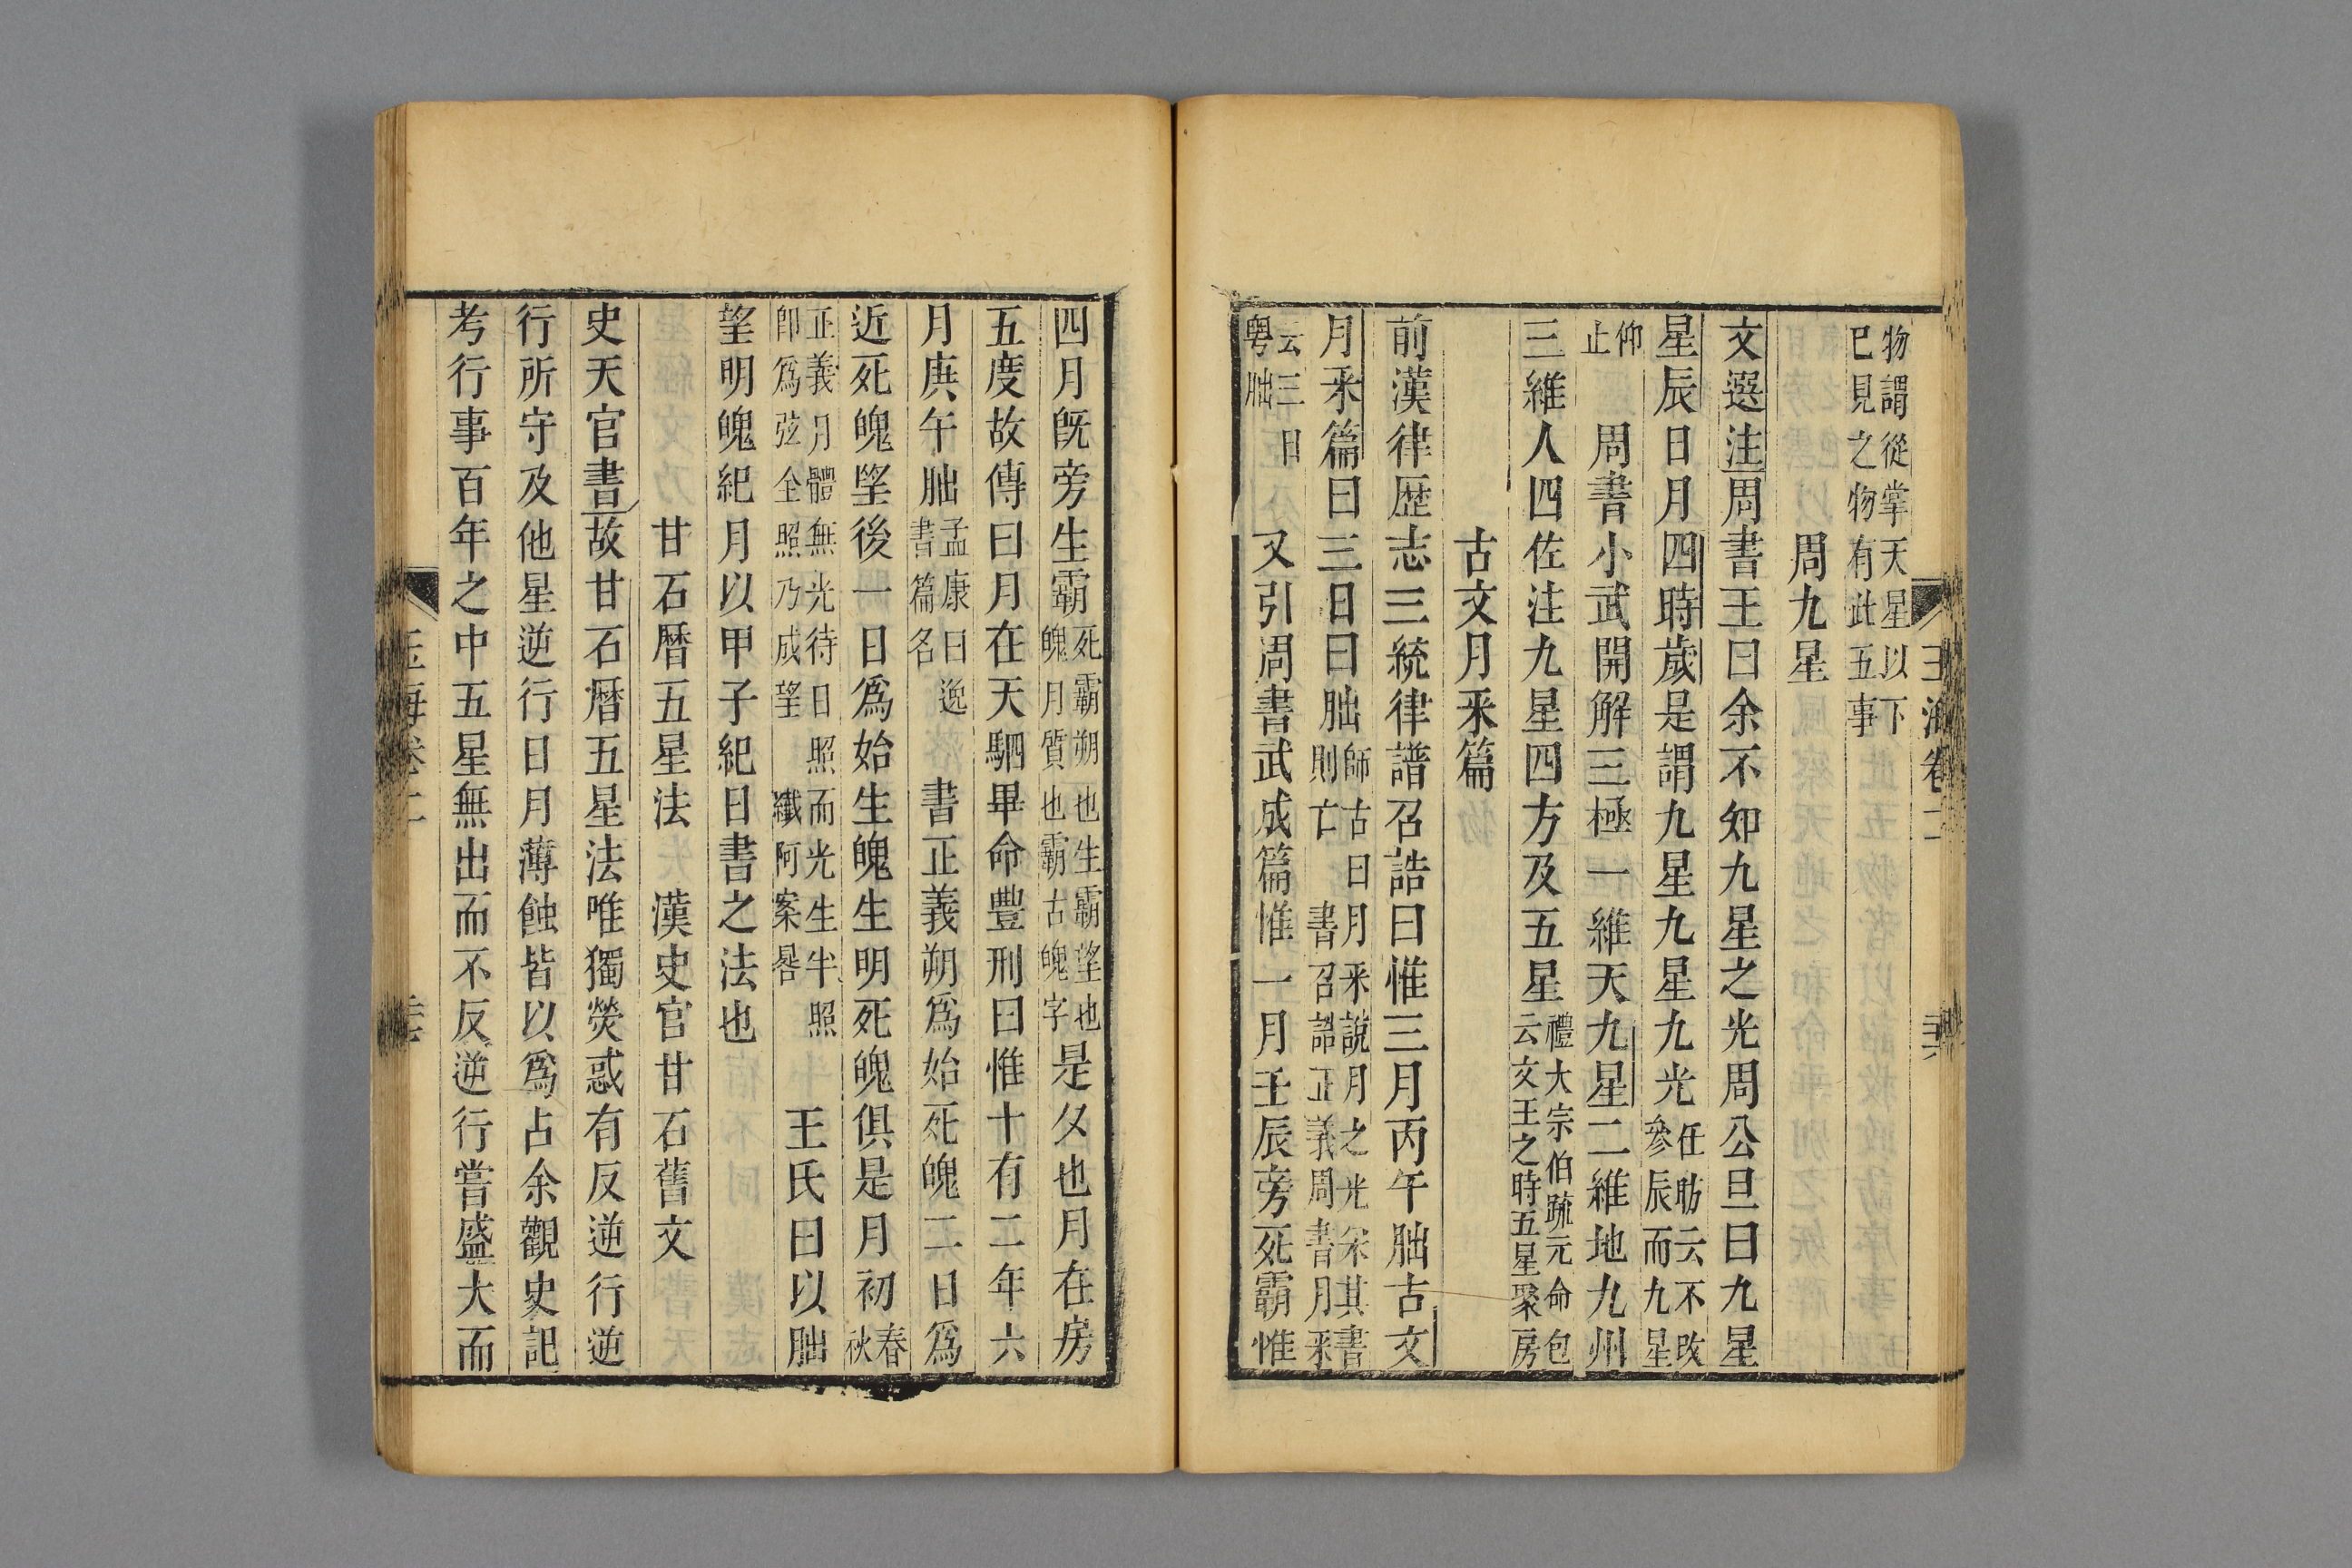 玉海卷二
物謂從掌天星以下
巳見之物有此五事
周九星
文選注周書王曰余不知九星之光周公旦曰九星
星辰日月四時歲是謂九星九星九光
任昉云不改
參辰而九星
仰
止
周書小武開解三極一維天九星二維地九州
三維人四佐注九星四方及五星
禮大宗伯疏元命包
云文王之時五星聚房
古文月采篇
前漢律歷志三統律譜召誥曰惟三月丙午朏古文
月采篇曰三日曰朏
師古曰月采說月之光宋其書
則亡 書召誥正義周書月采
云三日
粤朏
又引周書武成篇惟一月壬辰旁死霸惟
四月旣旁生霸
死霸朔也生霸望也
魄月質也霸古魄字
是夂也月在房
五度故傳曰月在天駟畢命豐刑曰惟十有二年六
月庚午朏
孟康曰逸
書篇名
書正義朔爲始死魄二日爲
近死魄望後一日爲始生魄生明死魄俱是月初
春
秋
正義月體無光待日照而光生半照
卽爲弦全照乃成望 纖阿案晷
王氏曰以朏
望明魄紀月以甲子紀日書之法也
甘石曆五星法 漢史官甘石舊文
史天官書故甘石曆五星法唯獨熒惑有反逆行逆
行所守及他星逆行日月薄蝕皆以爲占余觀史記
考行事百年之中五星無出而不反逆行嘗盛大而
玉海卷二